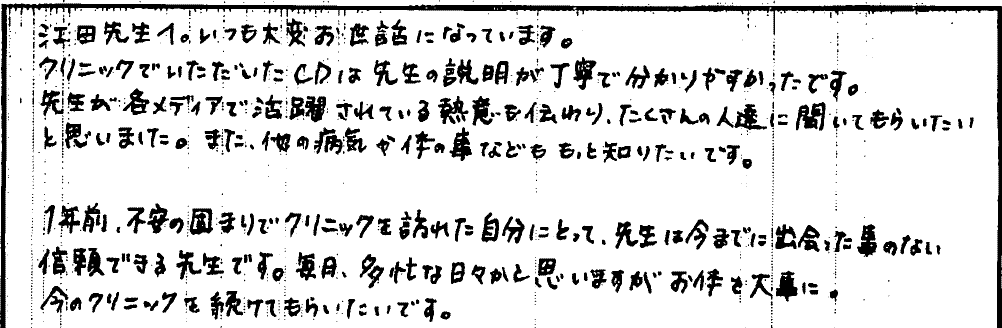 江田先生へ。いつも大変お世話になっています。
クリニックでいただいたCDは先生の説明が丁寧で分かりやすかったです。
先生が各メディアで活躍されている熱意も伝わり、たくさんの人達に聞いてもらいたい
と思いました。また、他の病気や体の事などももっと知りたいです。
1年前、不安の固まりでクリニックを訪れた自分にとって、先生は今までに出会った事のない
信頼できる先生です。毎月、多忙な日々かと思いますがお体を大事に。
今のクリニックを続けてもらいたいです。